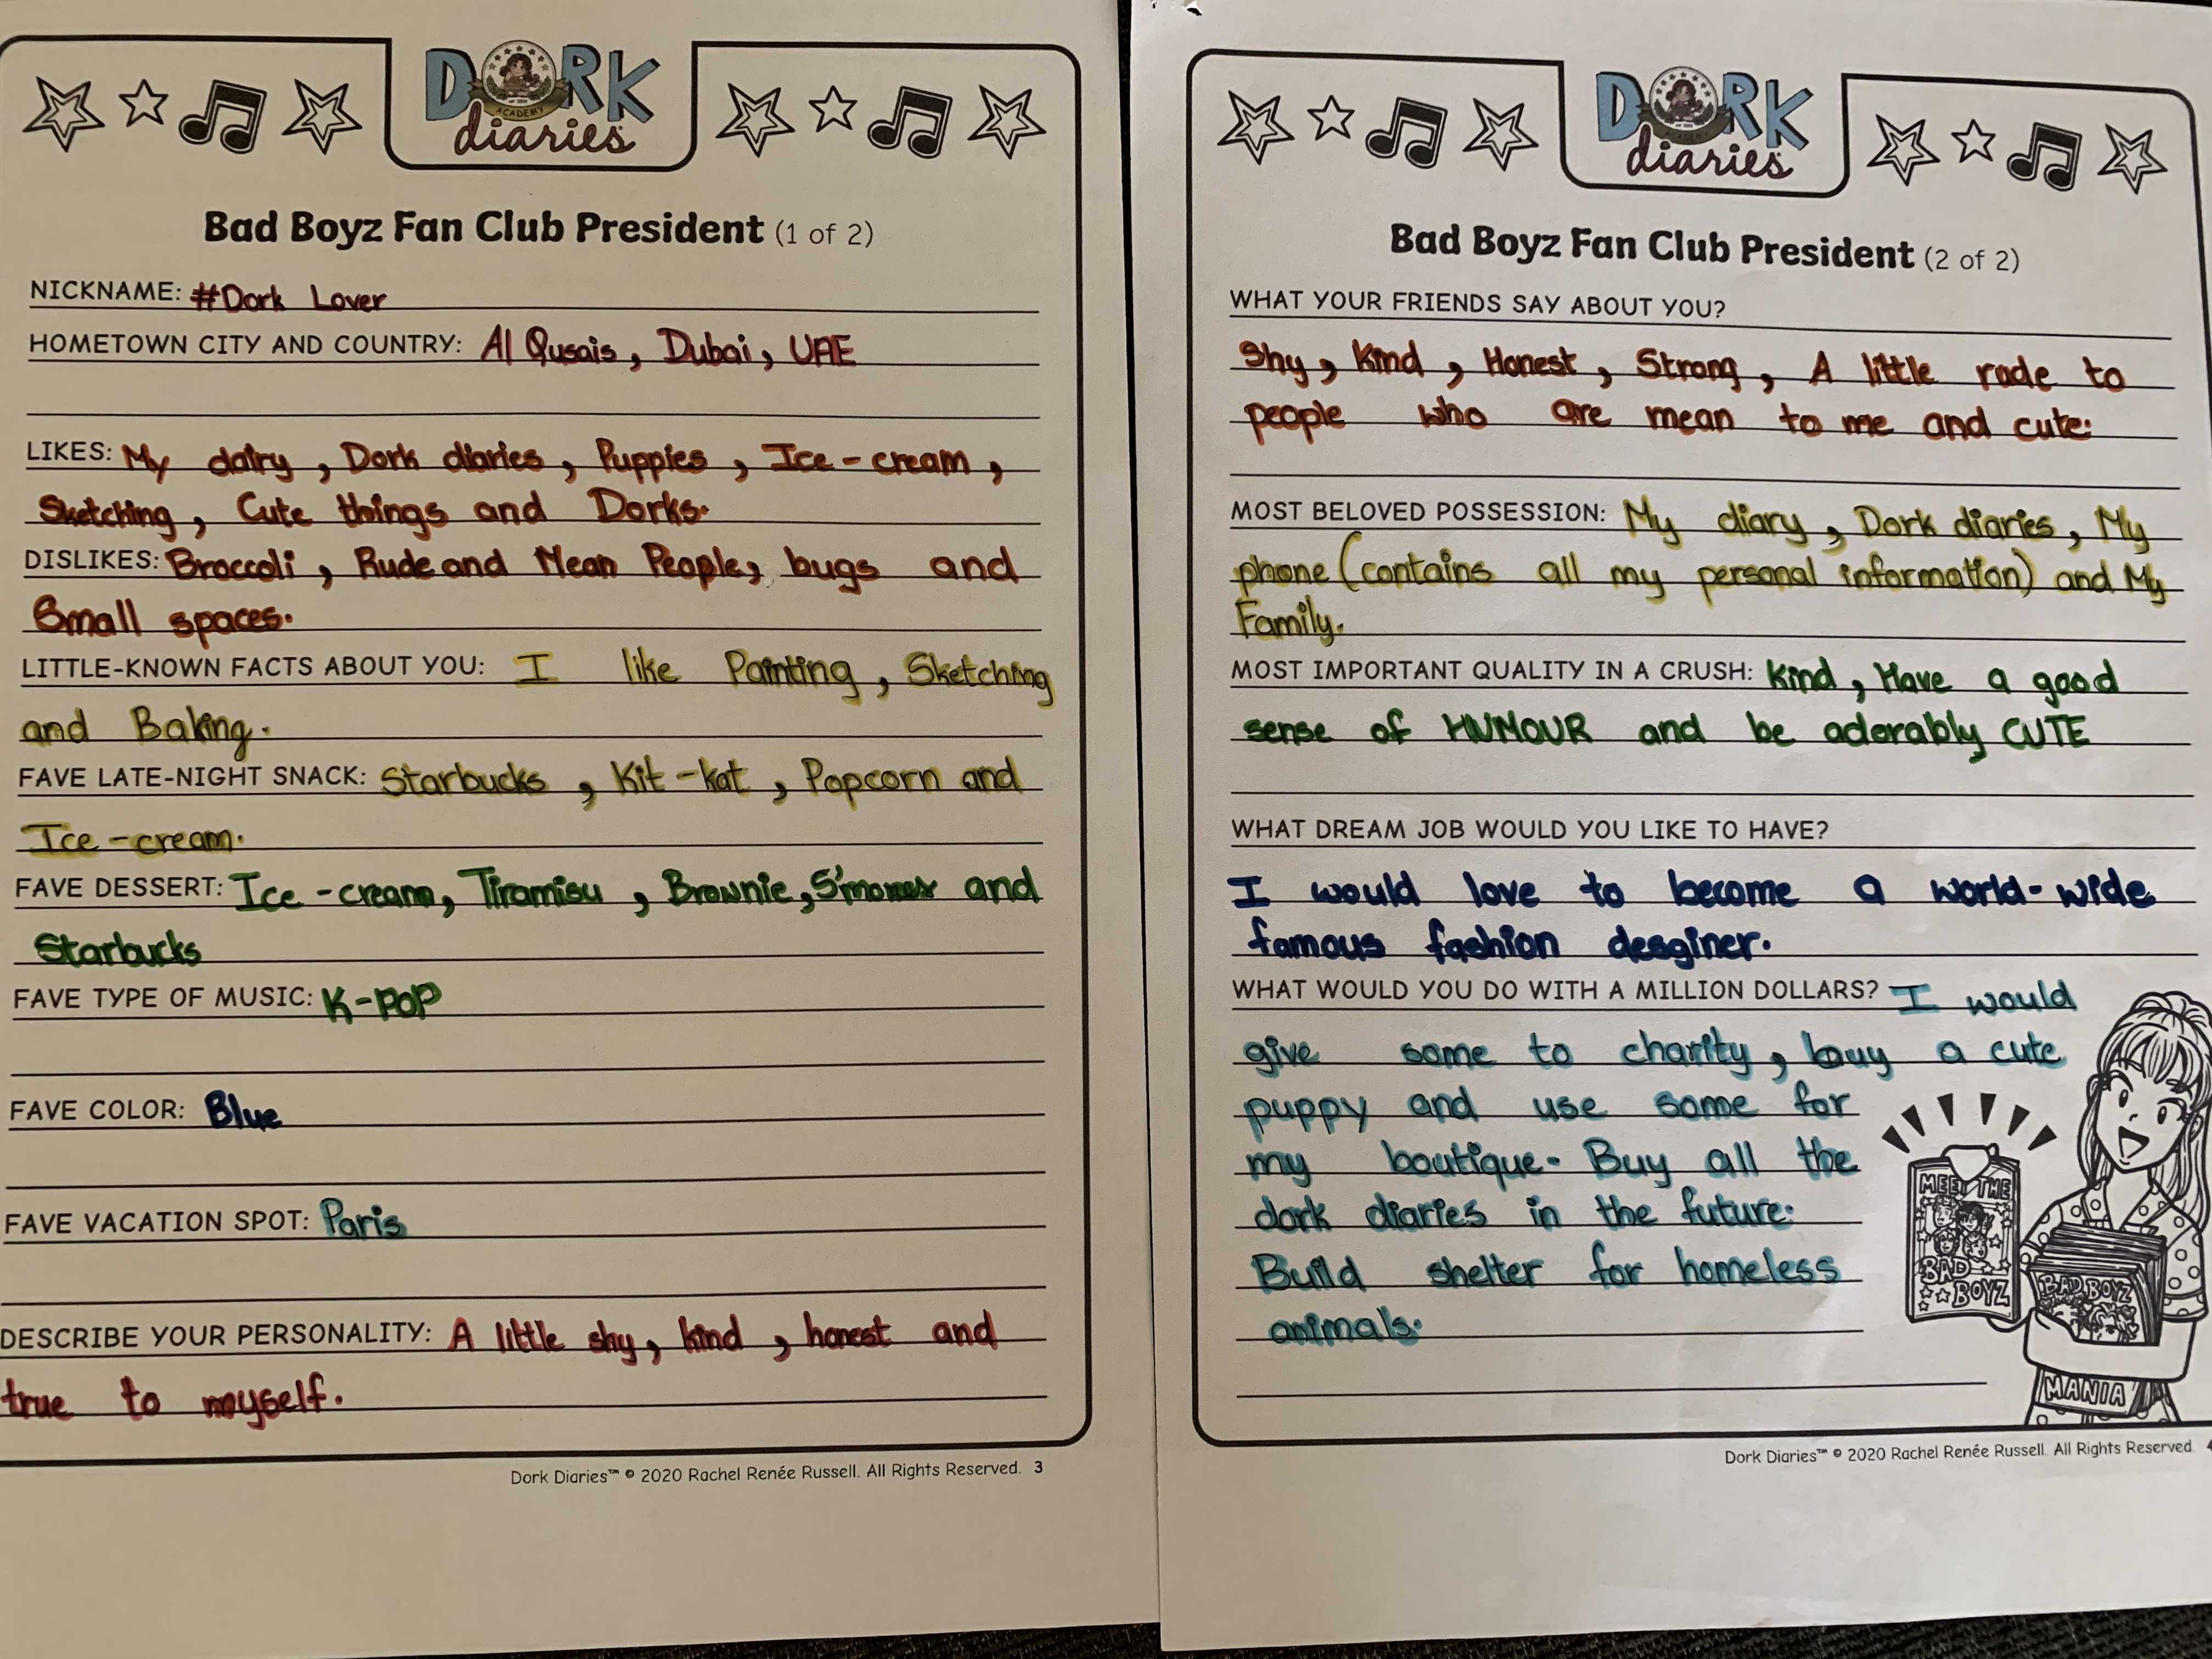 DORK
ACADEMY
diaries
Bad Boyz Fan Club President (1 of 2)
NICKNAME: #Dork Lover
HOMETOWN CITY AND COUNTRY: Al Qusais, Dubai, UAE
LIKES: My dairy, Dork diaries, Puppies, Ice-cream,
Sketching, Cute things and Dorks.
DISLIKES: Broccoli, Rude and Mean People, bugs and
Small spaces.
LITTLE-KNOWN FACTS ABOUT YOU: I like Painting, Sketching
and Baking.
FAVE LATE-NIGHT SNACK: Starbucks, Kit-kat, Popcorn and
Ice-cream.
FAVE DESSERT: Ice-cream, Tiramisu, Brownie, S'mores and
Starbucks
FAVE TYPE OF MUSIC: K-POP
FAVE COLOR: Blue
FAVE VACATION SPOT: Paris
DESCRIBE YOUR PERSONALITY: A little shy, kind, honest and
true to myself.
Dork Diaries™ © 2020 Rachel Renée Russell. All Rights Reserved. 3
DORK
diaries
Bad Boyz Fan Club President (2 of 2)
WHAT YOUR FRIENDS SAY ABOUT YOU?
Shy, Kind, Honest, Strong, A little rude to
people who are mean to me and cute.
MOST BELOVED POSSESSION: My diary, Dork diaries, My
phone (contains all my personal information) and My
Family.
MOST IMPORTANT QUALITY IN A CRUSH: Kind, Have a good
sense of HUMOUR and be adorably CUTE
WHAT DREAM JOB WOULD YOU LIKE TO HAVE?
I would love to become a world-wide
famous fashion desginer.
WHAT WOULD YOU DO WITH A MILLION DOLLARS? I would
give some to charity, buy a cute
puppy and use some for
my boutique. Buy all the
dork diaries in the future.
Build shelter for homeless
animals.
MEET THE
BAD
BOYZ
BAD BOYZ
MANIA
Dork Diaries™ © 2020 Rachel Renée Russell. All Rights Reserved. 4